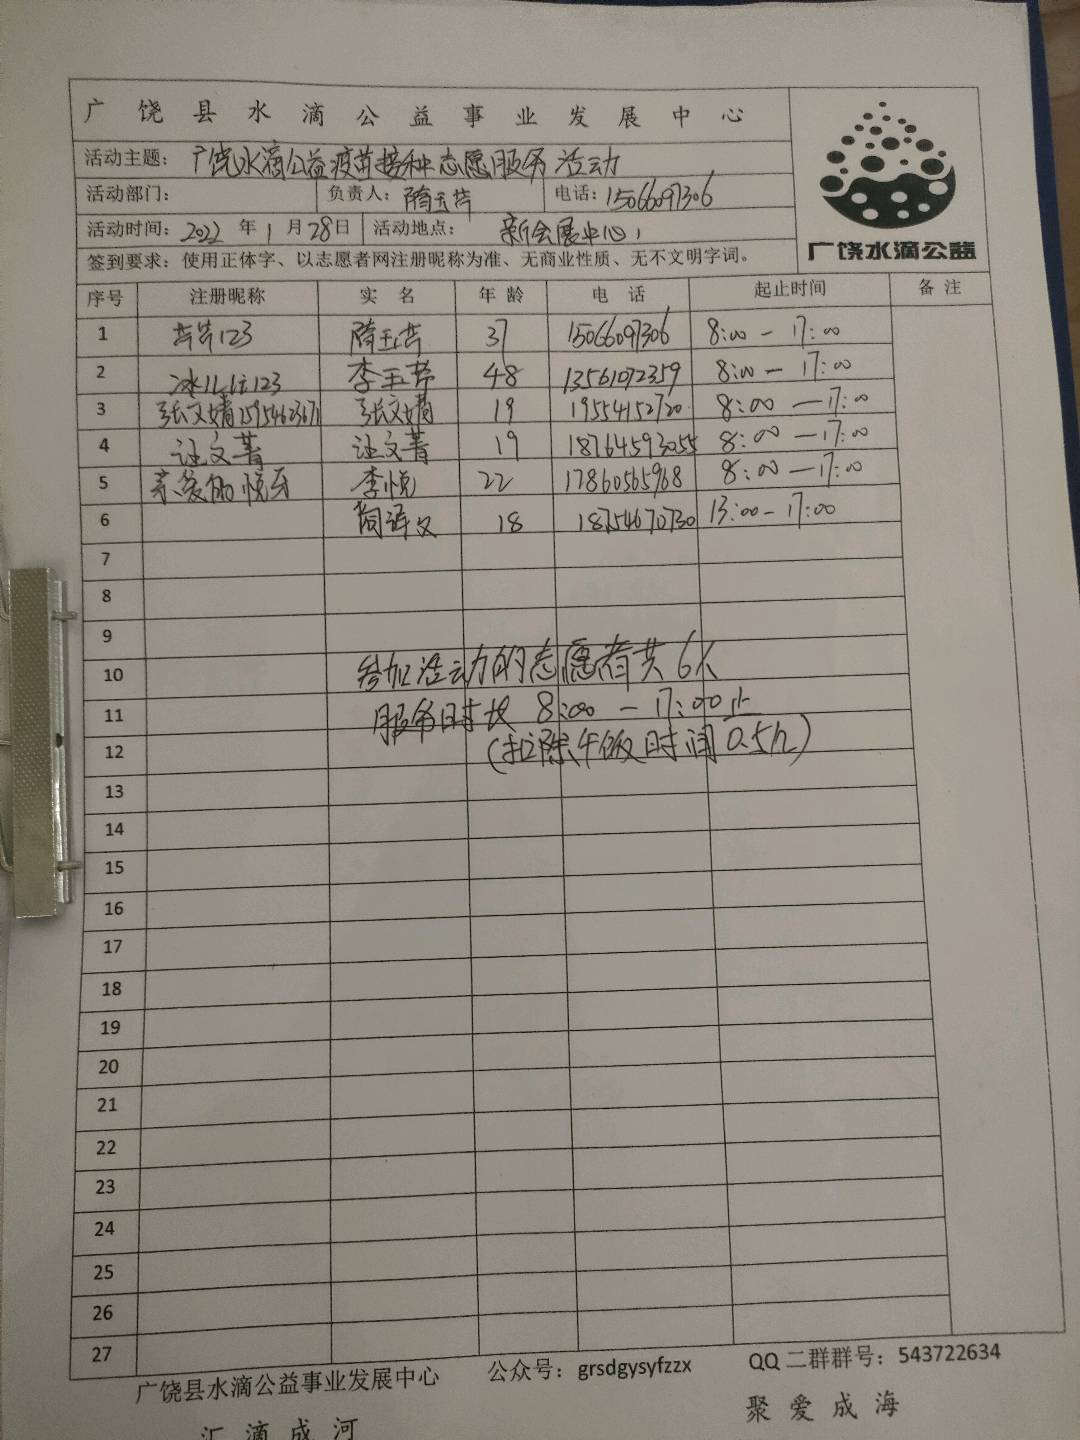 广饶县水滴公益事业发展中心
活动主题：广饶水滴公益疫苗接种志愿服务活动
活动部门： 负责人：隋玉芹 电话：15066097306
活动时间：2022年1月28日 活动地点：新会展中心
签到要求：使用正体字、以志愿者网注册昵称为准、无商业性质、无不文明字词。
广饶水滴公益
序号 注册昵称 实名 年龄 电话 起止时间 备注
1 芹芹123 隋玉芹 37 15066097306 8:00－17:00
2 李玉芹 48 13561072359 8:00－17:00
3 张文婧15954623671 张文婧 19 19554152720 8:00－17:00
4 汪文菁 汪文菁 19 18764593055 8:00－17:00
5 亲爱的悦牙 李悦 22 17860565968 8:00－17:00
6 18 18754670730 13:00－17:00
7
8
9
10 参加活动的志愿者共6人
11 服务时长 8:00－17:00止
12 (扣除午饭时间0.5h)
13
14
15
16
17
18
19
20
21
22
23
24
25
26
27
广饶县水滴公益事业发展中心 公众号：grsdgysyfzzx QQ二群群号：543722634
汇滴成河 聚爱成海